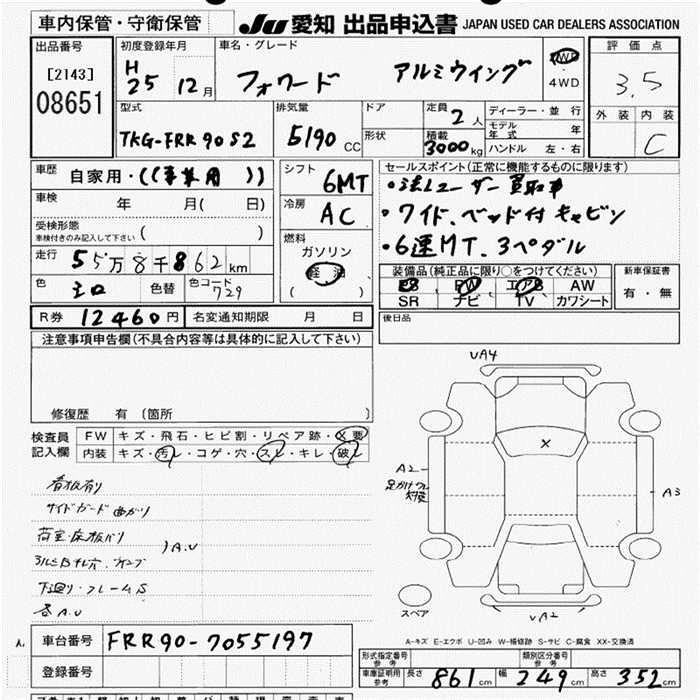 車内保管・守衛保管
JU 愛知 出品申込書 JAPAN USED CAR DEALERS ASSOCIATION
出品番号
[2143]
08651
初度登録年月
H
25 12月
車名・グレード
フォワード アルミウイング
4WD
評価点
3.5
外装 内装
C
型式
TKG-FRR90S2
排気量
5190 CC
ドア
形状
定員
2人
積載
3000kg
ディーラー・並行
モデル年式 年
ハンドル 左・右
車歴
自家用・((事業用))
車検 年 月( 日)
受検形態
車検付きのみ記入して下さい ( )
走行 55万8千862km
色 シロ 色替 色コード 729
シフト
6MT
冷房
AC
燃料
ガソリン
軽油
( )
セールスポイント(正常に機能するものに限ります)
・法人ユーザー買取車
・ワイド、ベッド付キャビン
・6速MT、3ペダル
装備品(純正品に限り○をつけてください)
PS PW エアB AW
SR ナビ TV カワシート
新車保証書
有・無
R券 12460円 名変通知期限 月 日
後日品
注意事項申告欄(不具合内容等は具体的に記入して下さい)
修復歴 有 (箇所 )
検査員
記入欄
FW キズ・飛石・ヒビ割・リペア跡・X要
内装 キズ・汚レ・コゲ・穴・スレ・キレ・破レ
看板有り
サイドガード曲がり
荷室・床板バリ
)A.U
下廻り・フレームS
各A.U
VA4
X
A2
A3
VA2
スペア
車台番号 FRR90-7055197
登録番号
A-キズ E-エクボ U-凹み W-補修跡 S-サビ C-腐食 XX-交換済
形式指定番号
参考
類別区分番号
参考
車庫証明用
参考
長さ 861cm 幅 249cm 高さ 352cm